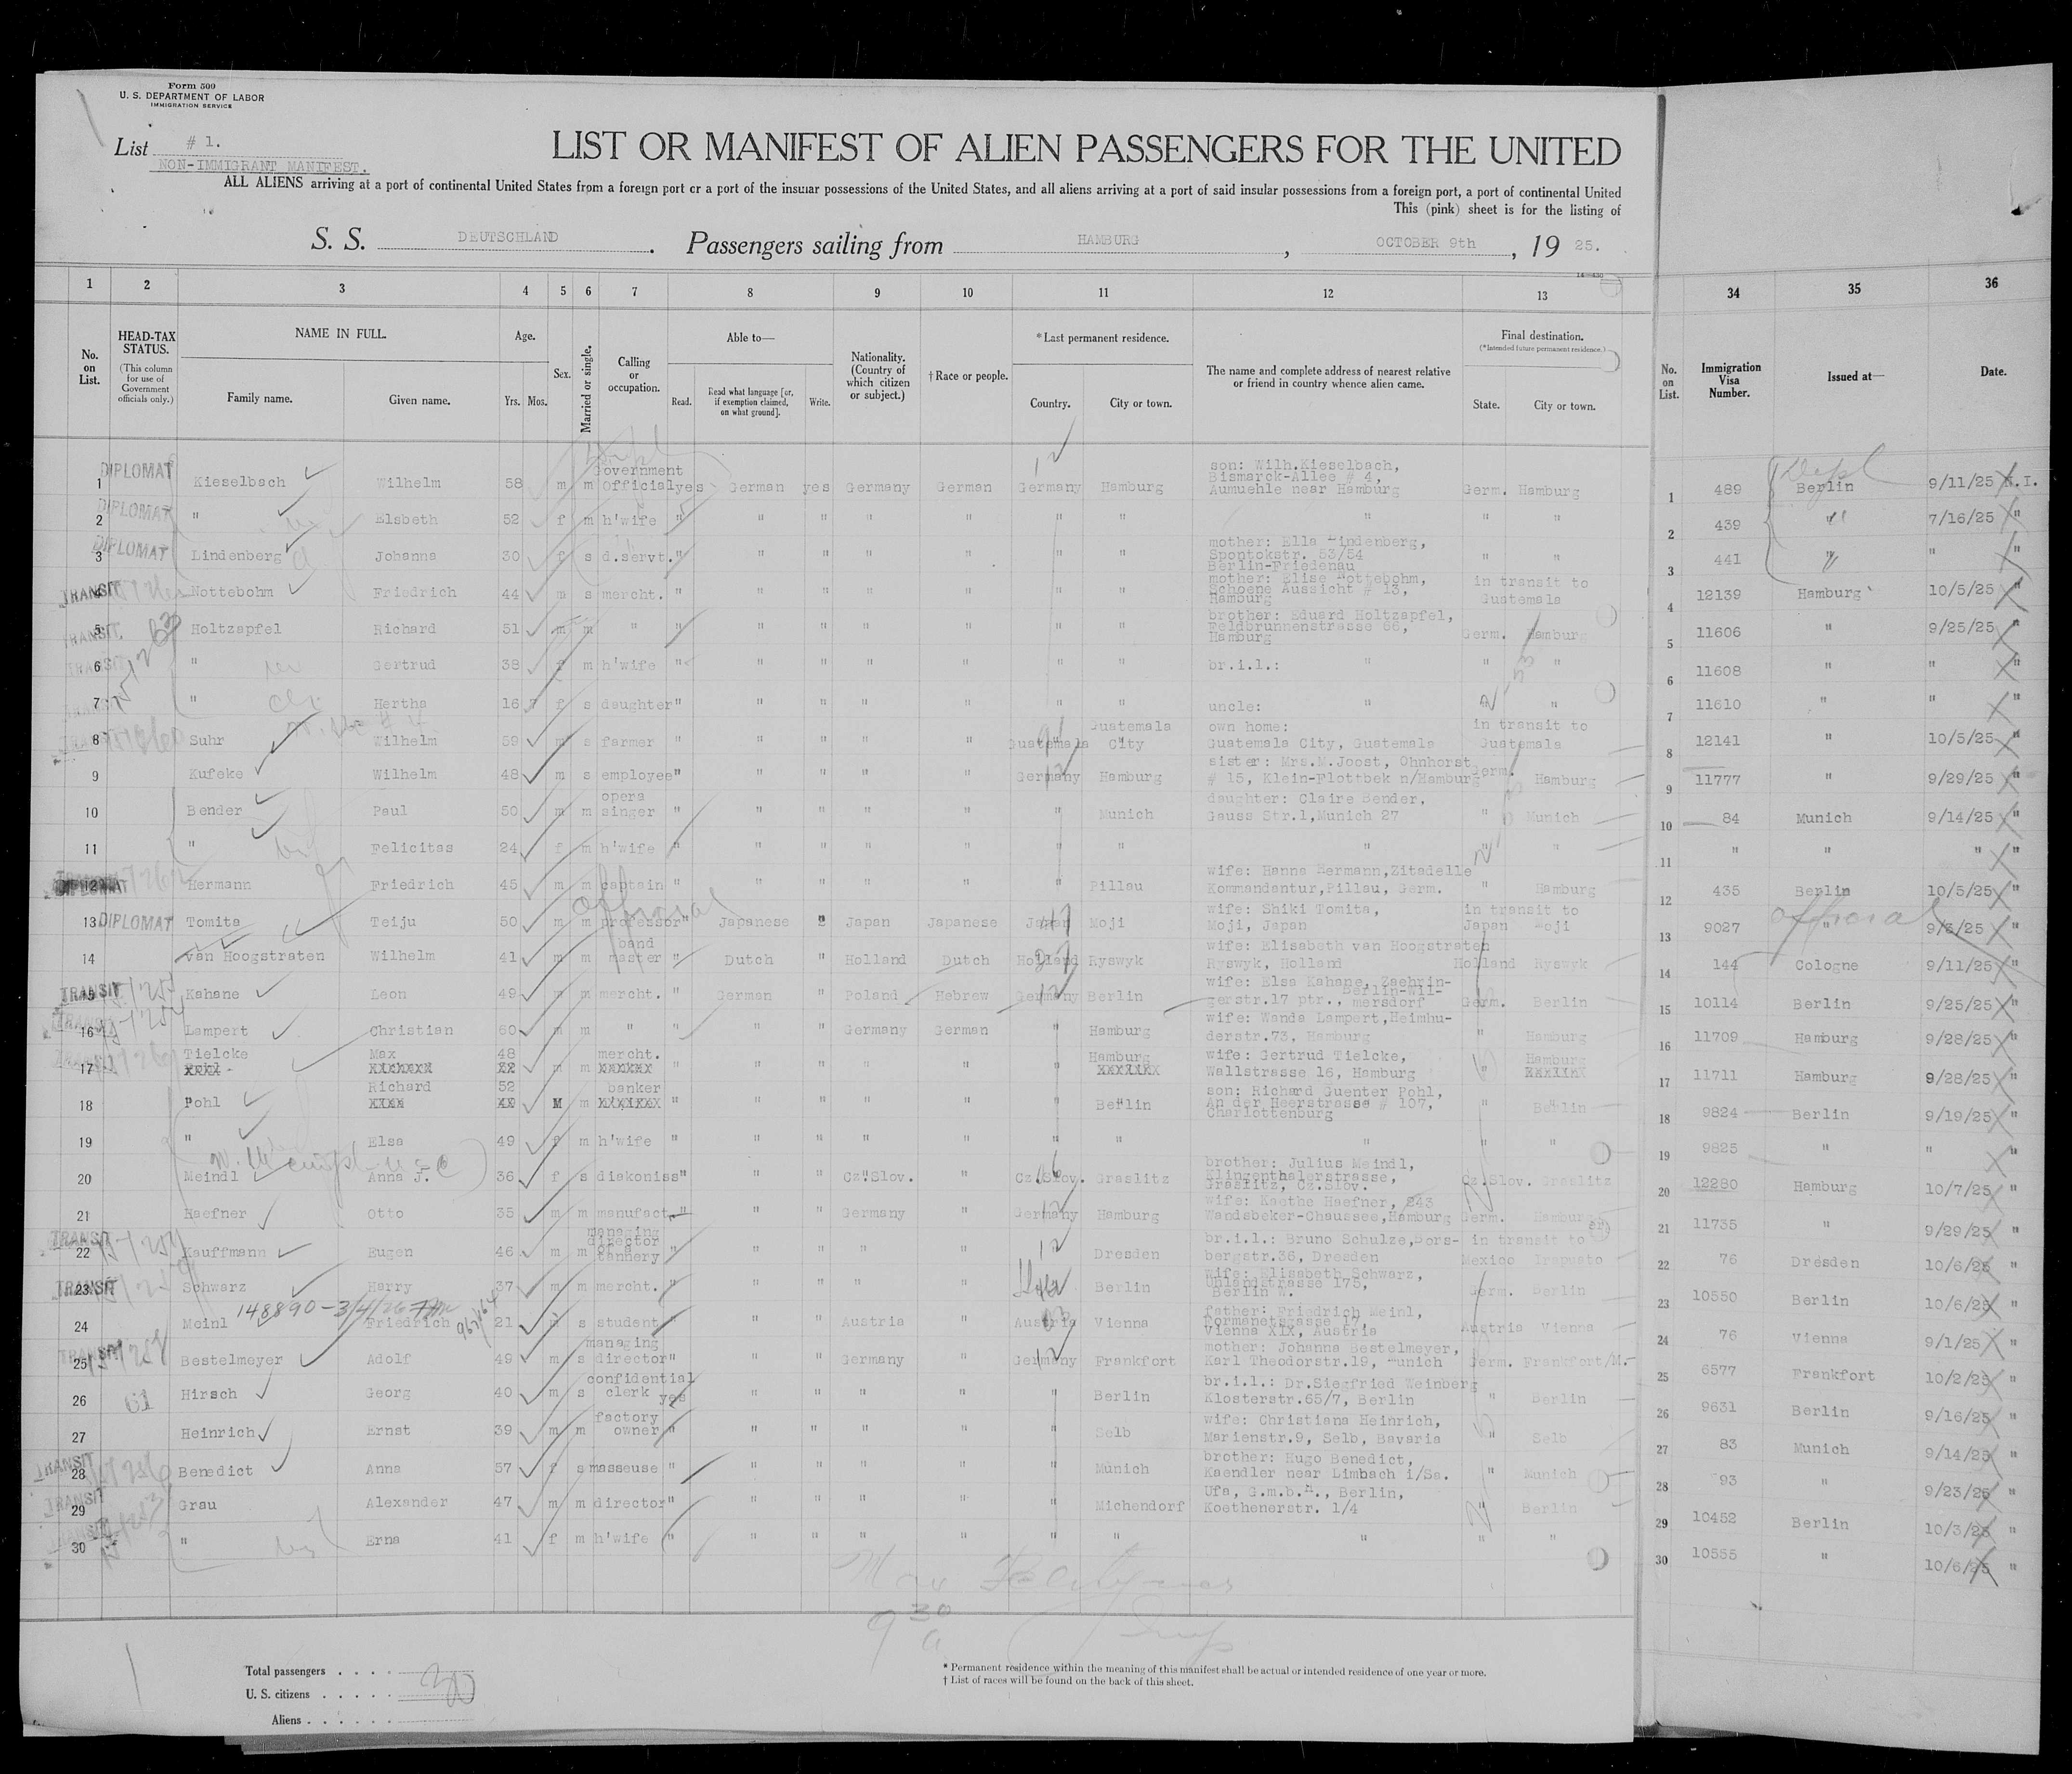 Form 500
U. S. DEPARTMENT OF LABOR
IMMIGRATION SERVICE
List # 1.
NON-IMMIGRANT MANIFEST.
LIST OR MANIFEST OF ALIEN PASSENGERS FOR THE UNITED
ALL ALIENS arriving at a port of continental United States from a foreign port or a port of the insular possessions of the United States, and all aliens arriving at a port of said insular possessions from a foreign port, a port of continental United
This (pink) sheet is for the listing of
S. S. DEUTSCHLAND. Passengers sailing from HAMBURG, OCTOBER 9th, 19 25.
1 2 3 4 5 6 7 8 9 10 11 12 13 34 35 36
No. on List.
HEAD-TAX STATUS.
(This column for use of Government officials only.)
NAME IN FULL.
Family name. Given name.
Age.
Yrs. Mos.
Sex.
Married or single.
Calling or occupation.
Able to—
Read. Read what language [or, if exemption claimed, on what ground]. Write.
Nationality. (Country of which citizen or subject.)
† Race or people.
* Last permanent residence.
Country. City or town.
The name and complete address of nearest relative or friend in country whence alien came.
Final destination.
(* Intended future permanent residence.)
State. City or town.
No. on List.
Immigration Visa Number.
Issued at—
Date.
1 DIPLOMAT Kieselbach Wilhelm 58 m m Government official yes German yes Germany German Germany Hamburg son: Wilh.Kieselbach, Bismarck-Allee # 4, Aumuehle near Hamburg Germ. Hamburg 1 489 Berlin 9/11/25
2 DIPLOMAT " Elsbeth 52 f m h'wife " " " " " " " " " " 2 439 " 7/16/25 "
3 DIPLOMAT Lindenberg Johanna 30 f s d.servt. " " " " " " " mother: Ella Lindenberg, Spontokstr. 53/54 Berlin-Friedenau " " 3 441 " " "
4 TRANSIT Nottebohm Friedrich 44 m s mercht. " " " " " " " mother: Elise Nottebohm, Schoene Aussicht # 13, Hamburg in transit to Guatemala 4 12139 Hamburg 10/5/25 "
5 TRANSIT Holtzapfel Richard 51 m m " " " " " " " " brother: Eduard Holtzapfel, Feldbrunnenstrasse 66, Hamburg Germ. Hamburg 5 11606 " 9/25/25 "
6 TRANSIT " Gertrud 38 f m h'wife " " " " " " " br.i.l.: " " " 6 11608 " " "
7 TRANSIT " Hertha 16 f s daughter " " " " " " " uncle: " " " 7 11610 " " "
8 TRANSIT Suhr Wilhelm 59 m s farmer " " " " " Guatemala Guatemala City own home: Guatemala City, Guatemala in transit to Guatemala 8 12141 " 10/5/25 "
9 Kufeke Wilhelm 48 m s employee " " " " " Germany Hamburg sister: Mrs.M.Joost, Ohnhorst # 15, Klein-Flottbek n/Hamburg Germ. Hamburg 9 11777 " 9/29/25 "
10 Bender Paul 50 m m opera singer " " " " " " Munich daughter: Claire Bender, Gauss Str.1,Munich 27 " Munich 10 84 Munich 9/14/25 "
11 " Felicitas 24 f m h'wife " " " " " " " " " " 11 " " " "
12 Hermann Friedrich 45 m m captain " " " " " " Pillau wife: Hanna Hermann,Zitadelle Kommandantur,Pillau, Germ. " Hamburg 12 435 Berlin 10/5/25 "
13 DIPLOMAT Tomita Teiju 50 m m professor " Japanese " Japan Japanese Japan Moji wife: Shiki Tomita, Moji, Japan in transit to Japan Moji 13 9027 " official 9/3/25 "
14 van Hoogstraten Wilhelm 41 m m band master " Dutch " Holland Dutch Holland Ryswyk wife: Elisabeth van Hoogstraten Ryswyk, Holland Holland Ryswyk 14 144 Cologne 9/11/25 "
15 TRANSIT Kahane Leon 49 m m mercht. " German " Poland Hebrew Germany Berlin wife: Elsa Kahane, Zaehringerstr.17 ptr., Berlin-Wilmersdorf Germ. Berlin 15 10114 Berlin 9/25/25 "
16 TRANSIT Lampert Christian 60 m m " " " " Germany German " Hamburg wife: Wanda Lampert,Heimhuderstr.73, Hamburg " Hamburg 16 11709 Hamburg 9/28/25 "
17 TRANSIT Tielcke Max 48 m m mercht. " " " " " " Hamburg wife: Gertrud Tielcke, Wallstrasse 16, Hamburg " Hamburg 17 11711 Hamburg 9/28/25 "
18 Pohl Richard 52 M m banker " " " " " " Berlin son: Richard Guenter Pohl, An der Heerstrasse # 107, Charlottenburg " Berlin 18 9824 Berlin 9/19/25 "
19 " Elsa 49 f m h'wife " " " " " " " " " " 19 9825 " " "
20 Meindl Anna J. 36 f s diakoniss " " " Cz.Slov. " Cz.Slov. Graslitz brother: Julius Meindl, Klingenthalerstrasse, Graslitz, Cz.Slov. Cz.Slov. Graslitz 20 12280 Hamburg 10/7/25 "
21 Haefner Otto 35 m m manufact. " " " Germany " Germany Hamburg wife: Kaethe Haefner, 243 Wandsbeker-Chaussee,Hamburg Germ. Hamburg 21 11735 " 9/29/25 "
22 TRANSIT Kauffmann Eugen 46 m m managing director of a tannery " " " " " " Dresden br.i.l.: Bruno Schulze,Borsbergstr.36, Dresden in transit to Mexico Irapuato 22 76 Dresden 10/6/25 "
23 TRANSIT Schwarz Harry 37 m m mercht. " " " " " " Berlin wife: Elisabeth Schwarz, Uhlandstrasse 175, Berlin W. Germ. Berlin 23 10550 Berlin 10/6/25 "
148890-3/4/26
24 Meinl Friedrich 21 m s student " " " Austria " Austria Vienna father: Friedrich Meinl, Vienna XIX, Austria Austria Vienna 24 76 Vienna 9/1/25 "
25 TRANSIT Bestelmeyer Adolf 49 m s managing director " " " Germany " Germany Frankfort mother: Johanna Bestelmeyer, Karl Theodorstr.19, Munich Germ. Frankfort/M. 25 6577 Frankfort 10/2/25 "
26 Hirsch Georg 40 m s confidential clerk yes " " " " " Berlin br.i.l.: Dr.Siegfried Weinberg Klosterstr.65/7, Berlin " Berlin 26 9631 Berlin 9/16/25 "
27 Heinrich Ernst 39 m m factory owner " " " " " " Selb wife: Christiana Heinrich, Marienstr.9, Selb, Bavaria " Selb 27 83 Munich 9/14/25 "
28 TRANSIT Benedict Anna 57 f s masseuse " " " " " " Munich brother: Hugo Benedict, Kaendler near Limbach i/Sa. " Munich 28 93 " 9/23/25 "
29 TRANSIT Grau Alexander 47 m m director " " " " " " Michendorf Ufa, G.m.b.H., Berlin, Koethenerstr. 1/4 " Berlin 29 10452 Berlin 10/3/25 "
30 TRANSIT " Erna 41 f m h'wife " " " " " " " " " " 30 10555 " 10/6/25 "
9 30 a
Total passengers . . . . 30
U. S. citizens . . . . .
Aliens . . . . . .
* Permanent residence within the meaning of this manifest shall be actual or intended residence of one year or more.
† List of races will be found on the back of this sheet.